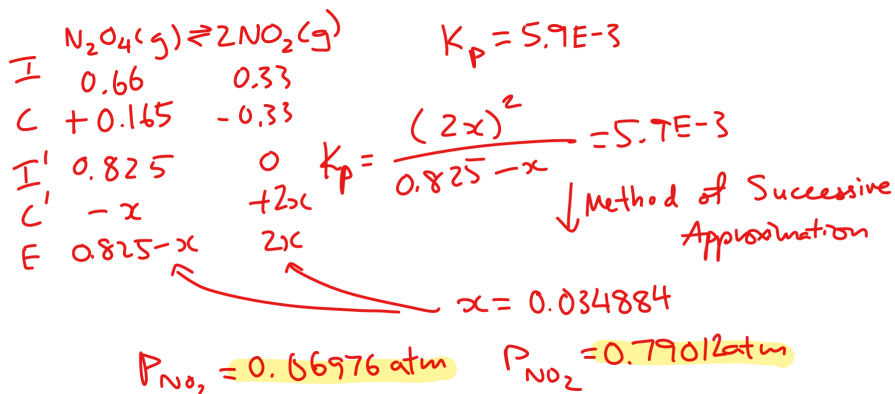 N₂O₄(g) ⇌ 2NO₂(g)
Kₚ = 5.9E-3
I 0.66 0.33
C +0.165 -0.33
I' 0.825 0
Kₚ = (2x)² / 0.825-x = 5.9E-3
C' -x +2x
E 0.825-x 2x
↓ Method of Successive
Approximation
x = 0.034884
P_NO₂ = 0.06976 atm
P_NO₂ = 0.79012 atm